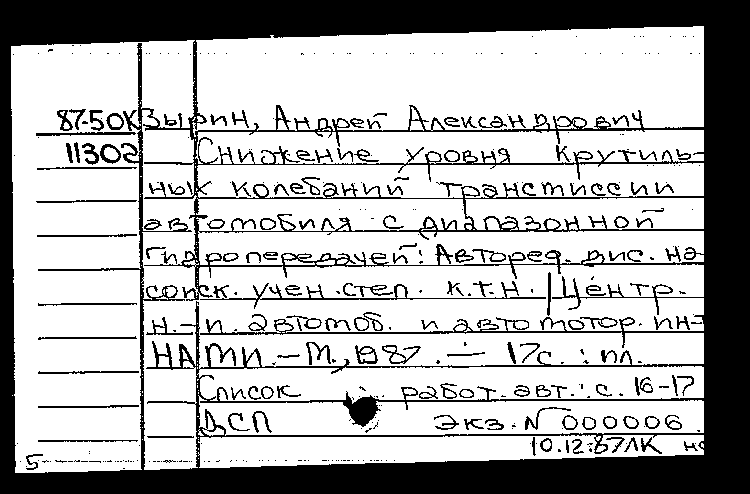 87-50К Зырин, Андрей Александрович
11302 Снижение уровня крутиль-
ных колебаний трансмиссии
автомобиля с диапазонной
гидропередачей: Автореф. дис. на
соиск. учен. степ. к.т.н. / Центр.
н.-и. автомоб. и автомотор. ин-т
НАМИ. - М., 1987. - 17с. : ил.
Список работ авт.: с. 16-17
ДСП Экз. N 000006.
10.12.87ЛК
5